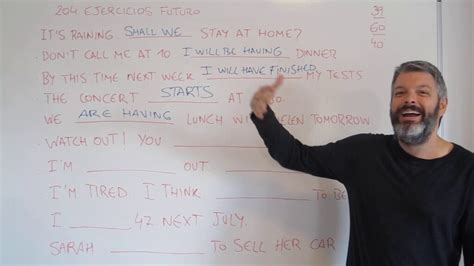 204 EJERCICIOS FUTURO
39
60
40
IT'S RAINING SHALL WE STAY AT HOME?
DON'T CALL ME AT 10 I WILL BE HAVING DINNER
BY THIS TIME NEXT WEEK I WILL HAVE FINISHED MY TESTS
THE CONCERT STARTS AT 30.
WE ARE HAVING LUNCH WITH ELEN TOMORROW
WATCH OUT! YOU
I'M OUT
I'M TIRED I THINK TO BE
I 42 NEXT JULY.
SARAH TO SELL HER CAR